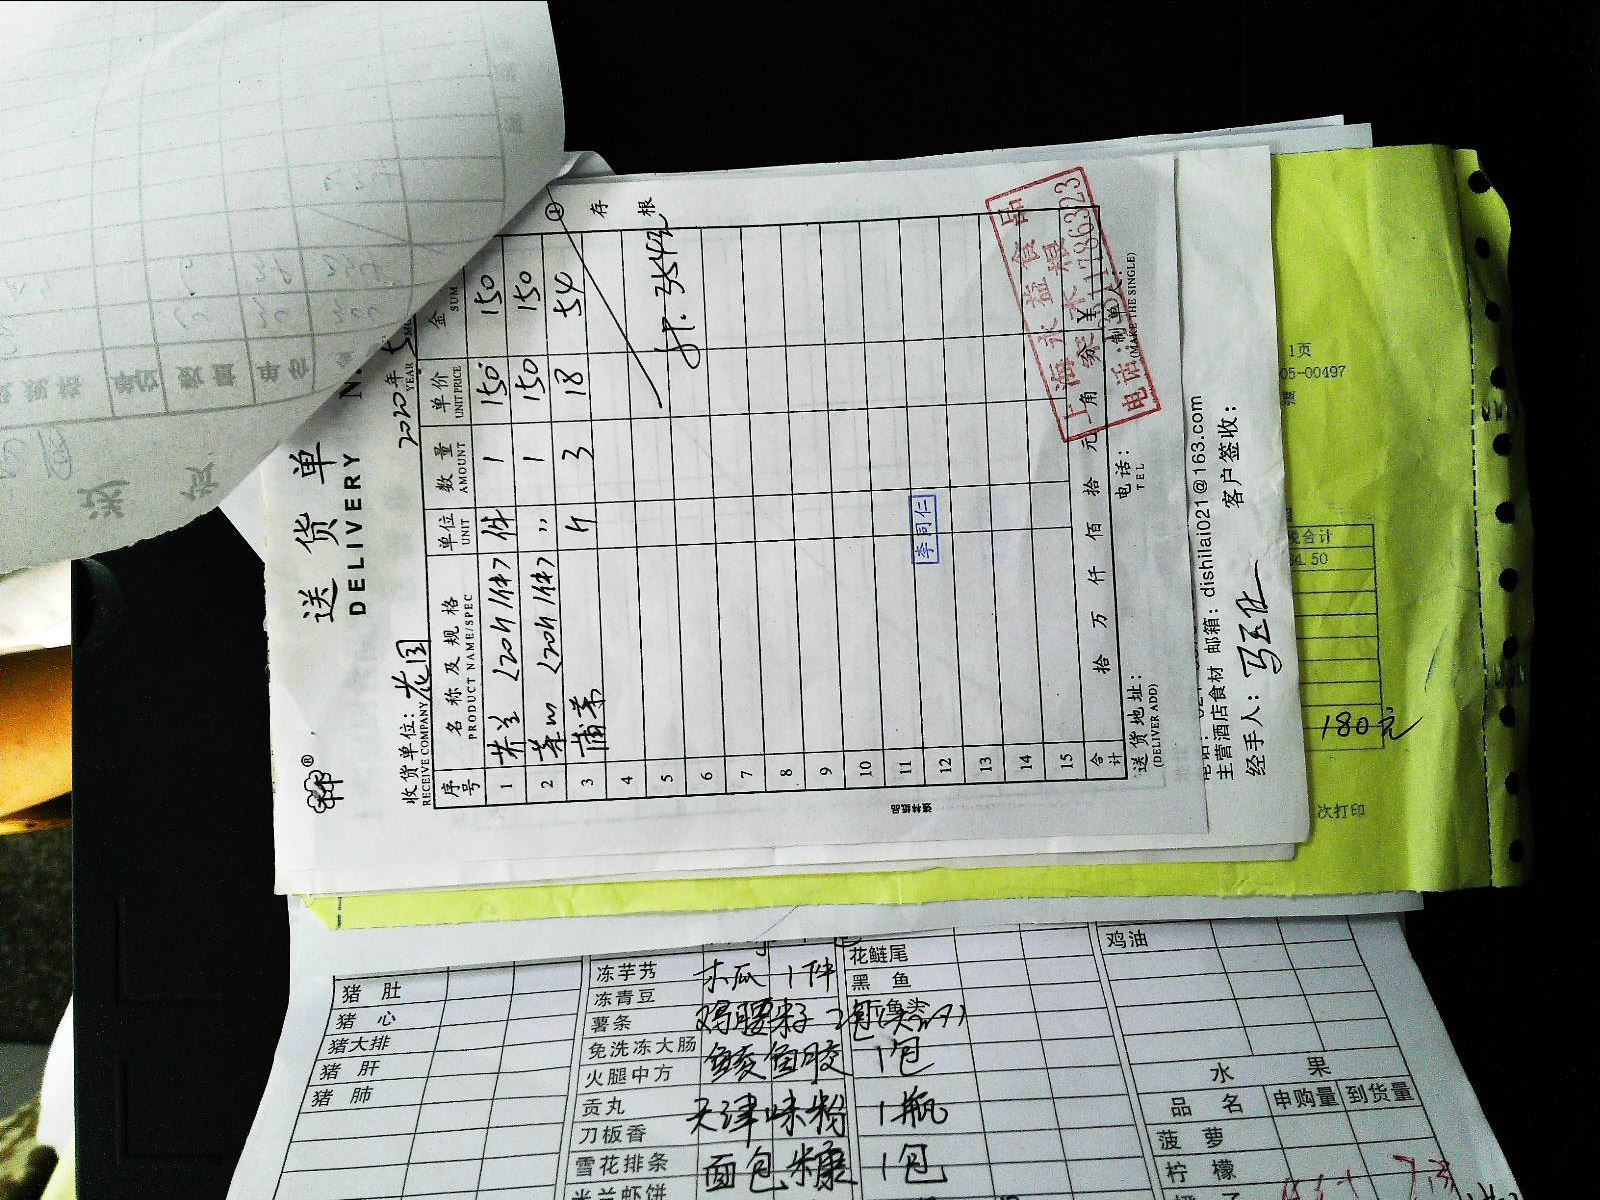 送货单
DELIVERY
收货单位：花园
RECEIVE COMPANY
2020年5
YEAR
序号 名称及规格 PRODUCT NAME/SPEC 单位 UNIT 数量 AMOUNT 单价 UNIT PRICE 金 SUM
1 芥兰 件 1 150 150
2 菜心 〃 1 150 150
3 蒲菜 斤 3 18 54
4
5
6
7
8
9
10
11
12
13
14
15
合计 拾 万 仟 佰 拾 元 角 分 ¥
①存根
李同仁
上海永益食品
送货地址：
(DELIVER ADD)
电话：
TEL
制单人：
(MAKE THE SINGLE)
主营酒店食材 邮箱：dishilai021@163.com
经手人：
客户签收：
1页
05-00497
合计
4.50
180元
次打印
猪肚
猪心
猪大排
猪肝
猪肺
冻芋艿
冻青豆
薯条
免洗冻大肠
火腿中方
贡丸
刀板香
雪花排条
米兰虾饼
木瓜 1件
鸡腰子
鲮鱼胶 1包
天津味粉 1瓶
面包糠 1包
花鲢尾
黑鱼
鸡油
水果
品名 申购量 到货量
菠萝
柠檬